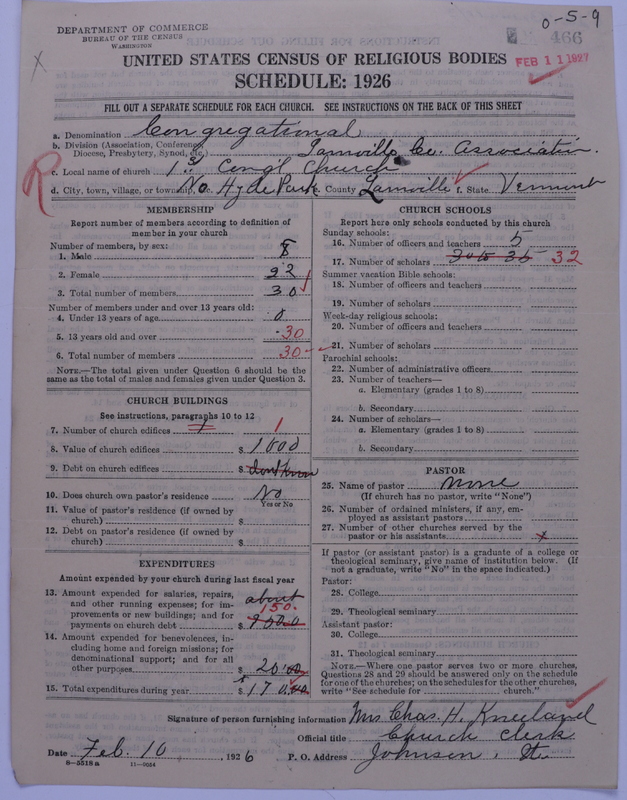 0-5-9
DEPARTMENT OF COMMERCE
BUREAU OF THE CENSUS
WASHINGTON
466
UNITED STATES CENSUS OF RELIGIOUS BODIES
FEB 11 1927
SCHEDULE: 1926
FILL OUT A SEPARATE SCHEDULE FOR EACH CHURCH. SEE INSTRUCTIONS ON THE BACK OF THIS SHEET
a. Denomination Congregational
b. Division (Association, Conference, Diocese, Presbytery, Synod, etc.) Lamville Co. Association.
c. Local name of church 1st Cong'l Church
R
d. City, town, village, or township, No. Hyde Park e. County Lamville f. State Vermont
MEMBERSHIP
Report number of members according to definition of
member in your church
Number of members, by sex:
1. Male 8
2. Female 22
3. Total number of members 30
Number of members under and over 13 years old:
4. Under 13 years of age 0
5. 13 years old and over 30
6. Total number of members 30
NOTE.—The total given under Question 6 should be
same as the total of males and females given under Question 3.
CHURCH BUILDINGS
See instructions, paragraphs 10 to 12
7. Number of church edifices 1 1
8. Value of church edifices $ 1000
9. Debt on church edifices $ dont know
10. Does church own pastor's residence No
Yes or No
11. Value of pastor's residence (if owned by
church) $
12. Debt on pastor's residence (if owned by
church) $
EXPENDITURES
Amount expended by your church during last fiscal year
13. Amount expended for salaries, repairs,
and other running expenses; for im-
provements or new buildings; and for
payments on church debt $ about 150.
14. Amount expended for benevolences, in-
cluding home and foreign missions; for
denominational support; and for all
other purposes $ 20.00
15. Total expenditures during year $ 170.00
CHURCH SCHOOLS
Report here only schools conducted by this church
Sunday schools:
16. Number of officers and teachers 5
17. Number of scholars 30 to 35 32
Summer vacation Bible schools:
18. Number of officers and teachers
19. Number of scholars
Week-day religious schools:
20. Number of officers and teachers
21. Number of scholars
Parochial schools:
22. Number of administrative officers
23. Number of teachers—
a. Elementary (grades 1 to 8)
b. Secondary
24. Number of scholars—
a. Elementary (grades 1 to 8)
b. Secondary
PASTOR
25. Name of pastor none
(If church has no pastor, write "None")
26. Number of ordained ministers, if any, em-
ployed as assistant pastors
27. Number of other churches served by the
pastor or his assistants x
If pastor (or assistant pastor) is a graduate of a college or
theological seminary, give name of institution below. (If
not a graduate, write "No" in the space indicated.)
Pastor:
28. College
29. Theological seminary
Assistant pastor:
30. College
31. Theological seminary
NOTE.—Where one pastor serves two or more churches,
Questions 28 and 29 should be answered only on the schedule
for one of the churches; on the schedules for the other churches,
write "See schedule for church."
Signature of person furnishing information Mrs. Chas. H. Kneeland
Official title Church Clerk
Date Feb. 10, 1926 P. O. Address Johnson, Vt.
8-5518a 11-9054